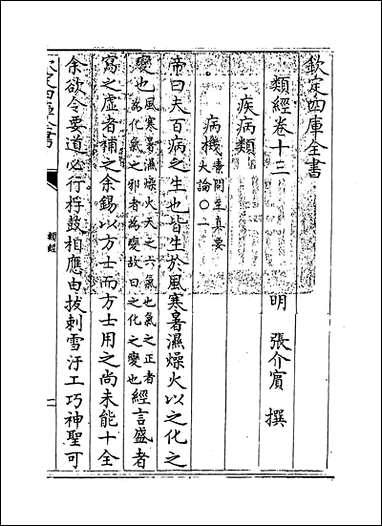 欽定四庫全書
類經卷十三
明 張介賓 撰
疾病類
病機 素問至真要大論○一
帝曰夫百病之生也皆生於風寒暑濕燥火以之化之
變也 風寒暑濕燥火天之六氣也氣之正者為化氣之邪者為變故曰之化之變也 經言盛者
寫之虛者補之余錫以方士而方士用之尚未能十全
余欲令要道必行桴鼓相應由拔刺雪汙工巧神聖可
類經